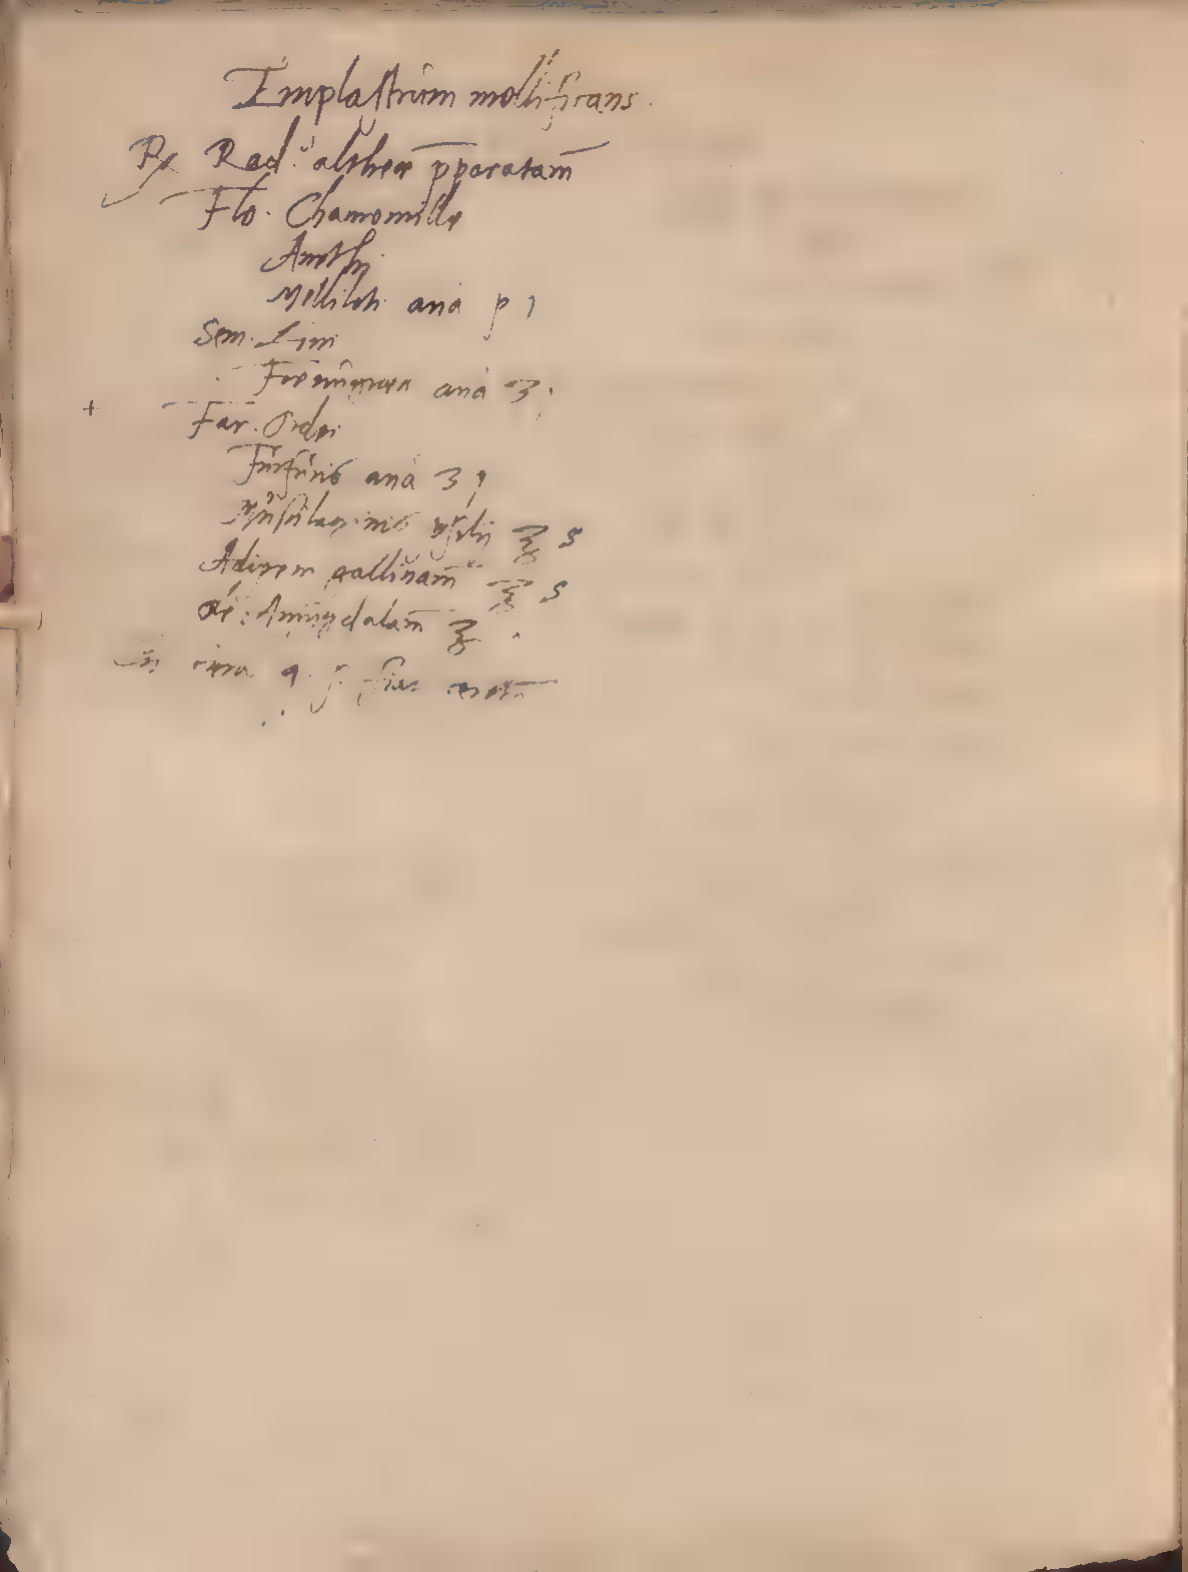 Implastrum mollificans.
℞ Rad. altheæ pparatam̄
Flo. Chamomille
Anethi
Melliloti ana p 1
Sem. Lini
Fœnugreci ana ʒ
+ Far. Ordei
Furfuris ana ʒ 1
Muscilaginis
Adipem gallinam̄ ℥ s
Ol: Amigdalam̄ ℥
cera q. s. fiat cerotū